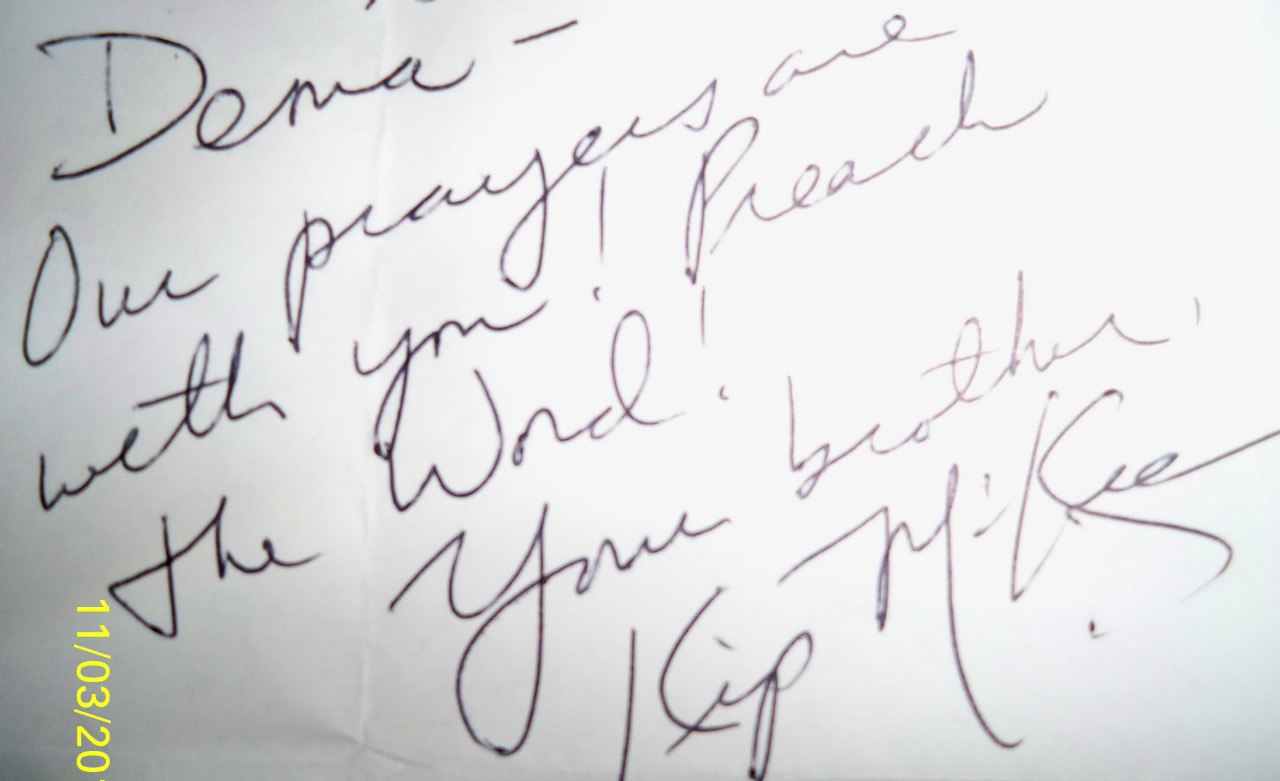 Dema -
Our prayers are
with you! Preach
the Word!
Your brother,
Kip McKee
11/03/20